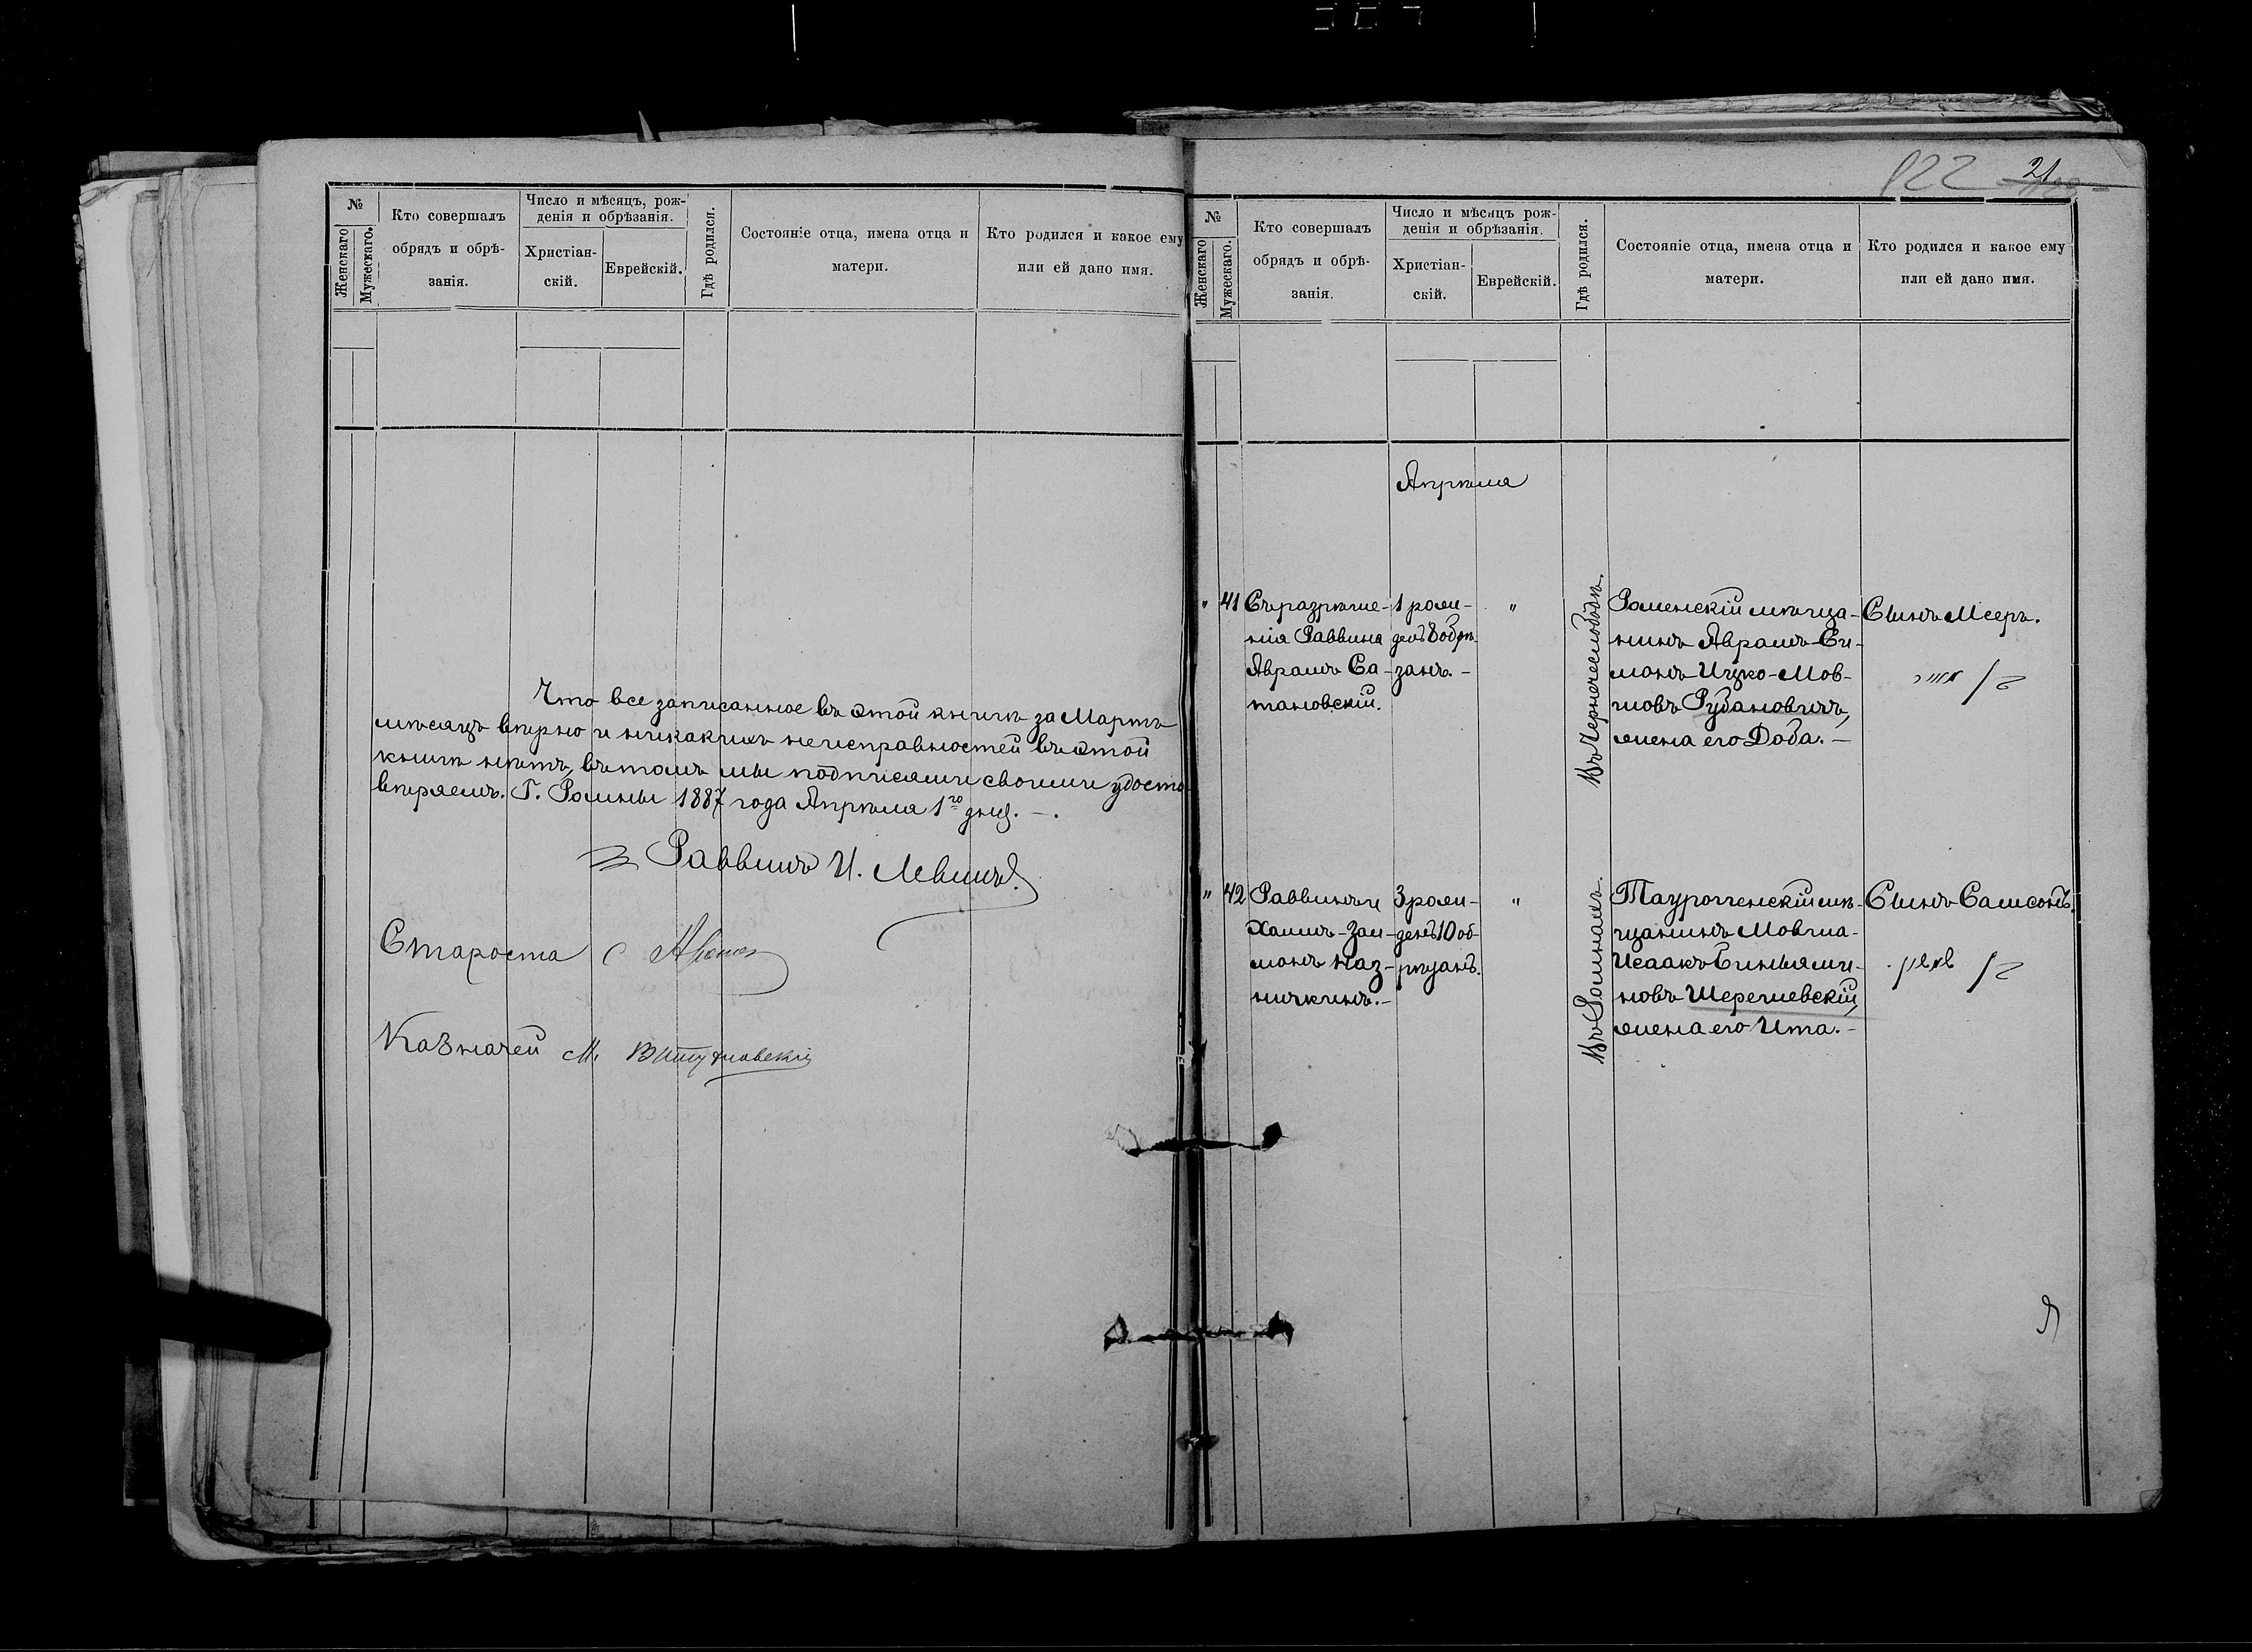 №
Женскаго
Мужескаго.
Кто совершалъ
обрядъ и обрѣ-
занія.
Число и мѣсяцъ, рож-
денія и обрѣзанія.
Христіан-
скій.
Еврейскій.
Гдѣ родился.
Состояніе отца, имена отца и
матери.
Кто родился и какое ему
или ей дано имя.
Что все записанное въ этой книгѣ за Мартъ
мѣсяцъ вѣрно и никакихъ неисправностей въ этой
книгѣ нѣтъ, въ томъ мы подписями своими удосто
вѣряемъ. Г. Ромны 1887 года Апрѣля 1го дня. —.
Раввинъ И. Левинъ
Староста
Казначей М.
822 21
№
Женскаго
Мужескаго.
Кто совершалъ
обрядъ и обрѣ-
занія.
Число и мѣсяцъ рож-
денія и обрѣзанія.
Христіан-
скій.
Еврейскій.
Гдѣ родился.
Состояніе отца, имена отца и
матери.
Кто родился и какое ему
или ей дано имя.
Апрѣля
" 41
Съ разрѣше-
нія Раввина
Аврамъ Са-
тановскій.
1 рож-
денъ 8 обрѣ-
занъ. -
"
Въ Чернечеслободкѣ.
Роменскій мѣща-
нинъ Аврамъ-Си-
монъ Ицко-Мов-
шовъ Рубановичъ,
жена его Доба. —
Сынъ Мееръ.
בן מאיר
" 42
Раввинъ и
Хаимъ-Зал-
монъ Каз-
ничкинъ. -
3 рож-
денъ 10 об-
рѣзанъ.
"
Въ Ромнахъ.
Таурогенскій мѣ-
щанинъ Мовша-
Исаакъ Биньями-
новъ Шерешевскій,
жена его Ита. -
Сынъ Самсонъ.
בן שמשון